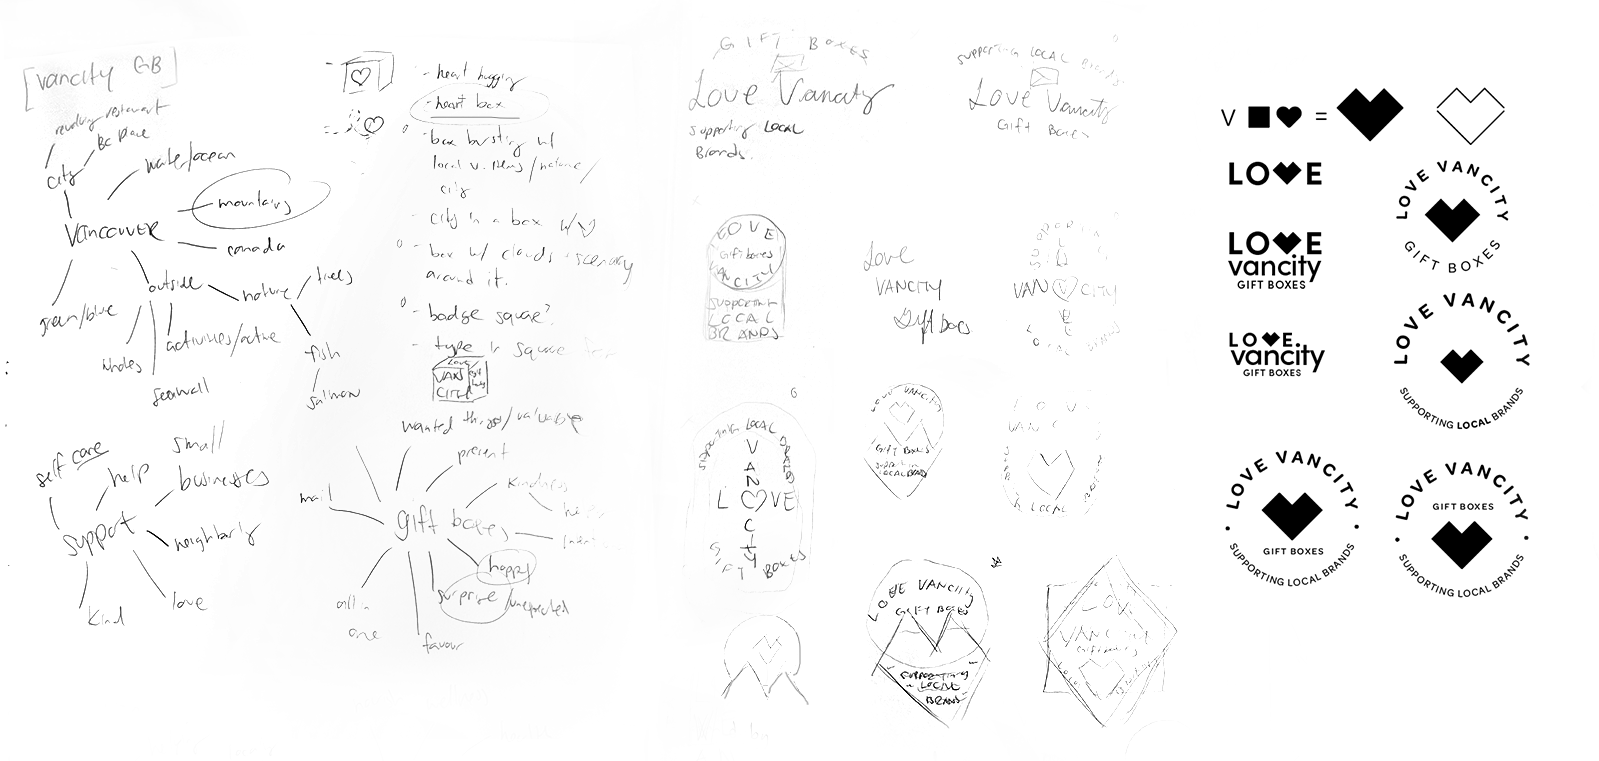 [vancity GB]
revolving restaurant
BC Place
city
water/ocean
mountains
VANCOUVER
canada
outside
nature
trees
green/blue
whales
activities/active
seawall
fish
salmon
self care
help
small
businesses
support
neighbourly
kind
love
- heart hugging
- heart box
- box bursting w/
local v. items/nature/
city
- city in a box w/
- box w/ clouds + scenery
around it.
- badge square?
- type in square
LOVE
VAN
CITY
wanted things/valuable
present
kindness
mail
gift boxes
happy
surprise/unexpected
all in
one
favour
GIFT BOXES
Love Vancity
supporting LOCAL
Brands.
SUPPORTING LOCAL Brands
Love Vancity
Gift Boxes
LOVE
Gift boxes
VANCITY
SUPPORTING
LOCAL
BRANDS
Love
VANCITY
Gift boxes
VAN V CITY
SUPPORTING LOCAL BRANDS
VAN
L VE
CITY
GIFT BOXES
LOVE VANCITY
GIFT BOXES
SUPPORTING
LOCAL BRANDS
LOVE
VANCITY
LOCAL
LOVE VANCITY
GIFT BOXES
SUPPORTING
LOCAL
BRANDS
LOVE
VANCITY
Gift boxes
V =
LO E
LO E
vancity
GIFT BOXES
LO E
vancity
GIFT BOXES
LOVE VANCITY
GIFT BOXES
LOVE VANCITY
SUPPORTING LOCAL BRANDS
LOVE VANCITY
GIFT BOXES
• SUPPORTING LOCAL BRANDS •
LOVE VANCITY
GIFT BOXES
• SUPPORTING LOCAL BRANDS •